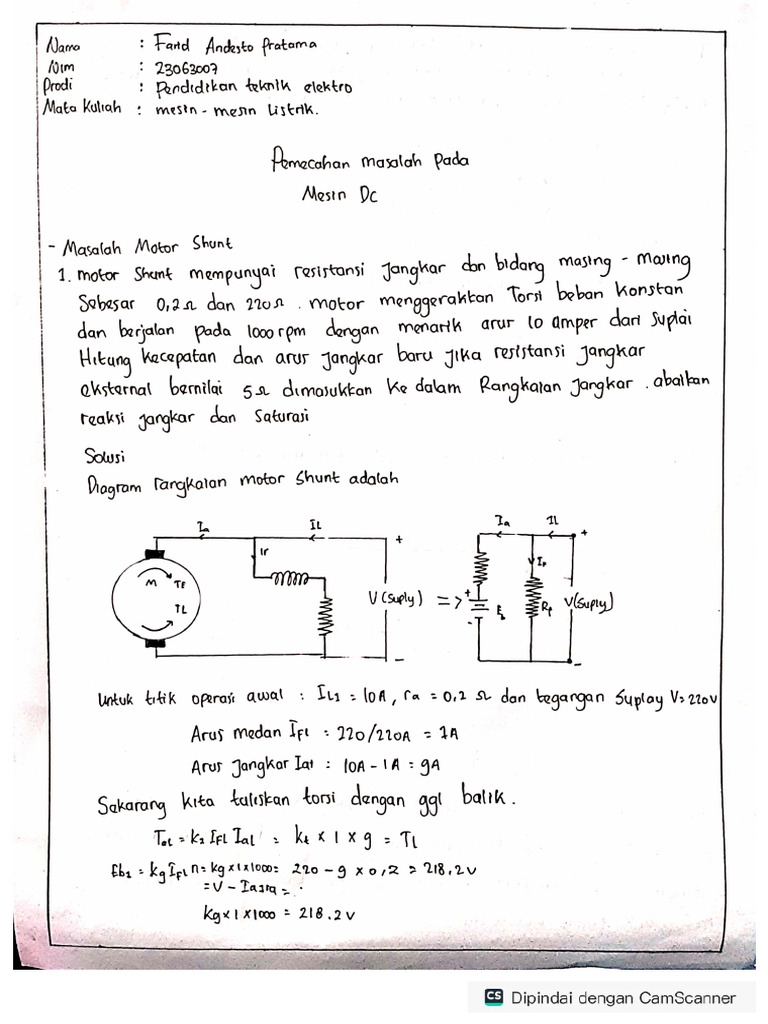 Nama : Farid Andesto Pratama
Nim : 23063007
Prodi : Pendidikan teknik elektro
Mata Kuliah : mesin - mesin Listrik.
Pemecahan masalah pada
Mesin Dc
- Masalah Motor Shunt
1. motor Shunt mempunyai resistansi Jangkar dan bidang masing - masing
Sebesar 0,2 Ω dan 220 Ω . motor menggerakkan Torsi beban Konstan
dan berjalan pada 1000 rpm dengan menarik arur 10 amper dari Suplai
Hitung Kecepatan dan arus Jangkar baru Jika resistansi Jangkar
eksternal bernilai 5 Ω dimasukkan Ke dalam Rangkaian Jangkar . abaikan
reaksi jangkar dan Saturasi
Solusi
Diagram rangkaian motor Shunt adalah
Ia IL + Ia IL +
Ir If
M TE
TL
V (Suply) => + Eb Rf V(Suply)
- - -
Untuk titik operasi awal : IL1 = 10A, ra = 0.2 Ω dan tegangan Suplay V= 220V
Arus medan If1 : 220/220A = 1A
Arus Jangkar Ia1 : 10A - 1A = 9A
Sekarang kita tuliskan torsi dengan ggl balik.
= kt x 1 x 9 = TL
= kg x 1 x 1000 = 220 - 9 x 0,2 = 218.2V
= V -
kg x 1 x 1000 = 218.2V
CS Dipindai dengan CamScanner